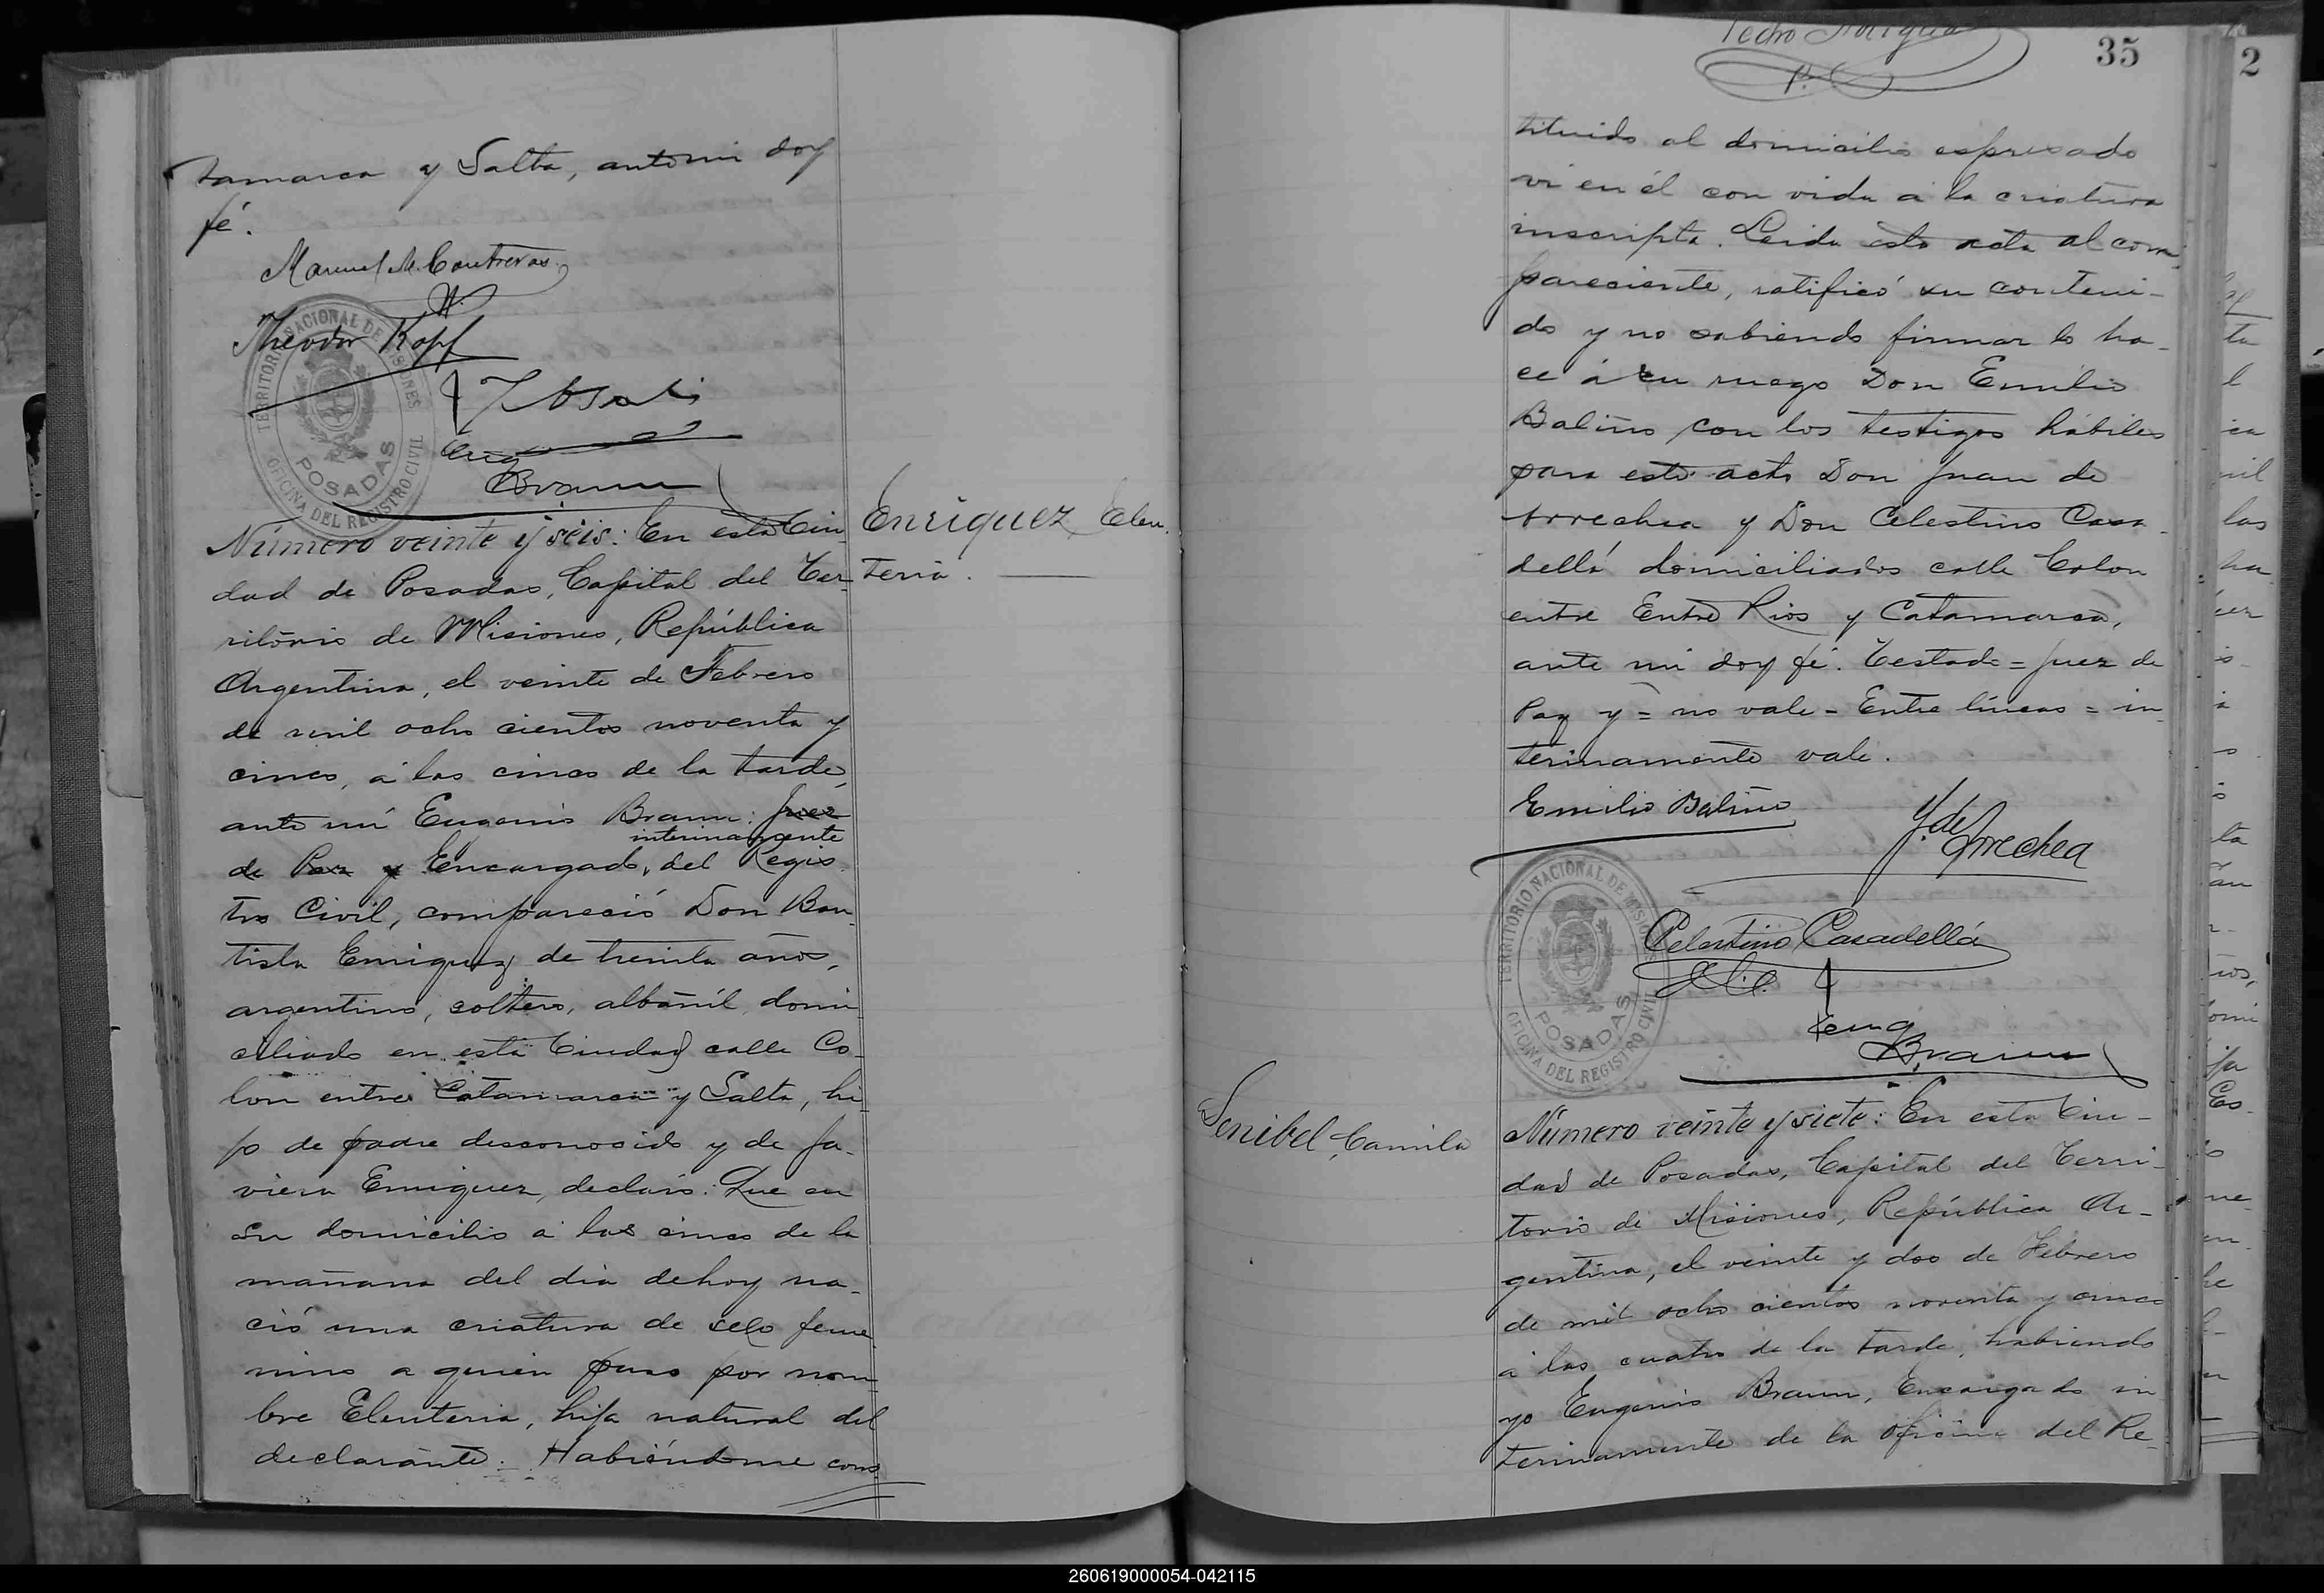 tamarca y Salta, ante mi doy
fé.
Manuel M. Contreras
Theodor Kopf
TERRITORIO NACIONAL DE MISIONES
POSADAS
OFICINA DEL REGISTRO CIVIL
Eug
Braun
Número veinte y séis: En esta Ciu
dad de Posadas, Capital del Ter-
ritório de Misiones, República
Argentina, el veinte de Febrero
de mil ocho cientos noventa y
cinco, á las cinco de la tarde,
ante mí Eugenio Braun: Juez
interinamente
de Paz y Encargado, del Regis
tro Civil, compareció Don Bau
tista Enriquez de treinta años,
argentino, soltero, albañil, domi
ciliado en esta Ciudad calle Co-
lon entre Catamarca y Salta, hi
jo de padre desconocido y de Ja-
viera Enriquez, declaró: Que en
su domicilio a las cinco de la
mañana del dia de hoy na-
ció una criatura de secso feme
nino a quien puso por nom
bre Eleuteria, hija natural del
declarante. Habiéndome cons
Enriquez, Eleu.
teria.
35
2
Pedro
tituido al domicilio espresado
vi en él con vida a la criatura
inscripta. Leida esta acta al com
pareciente, ratificó su conteni-
do y no sabiendo firmar lo ha-
ce á su ruego Don Emilio
Baliño con los testigos hábiles
para este acto Don Juan de
Arrechea y Don Celestino Casa-
dellá domiciliados calle Colon
entre Entre Rios y Catamarca,
ante mi doy fé. Testado = Juez de
Paz y = no vale - Entre líneas = in
terinamente vale.
Emilio Baliño
J. de Arrechea
Celestino Casadellá
TERRITORIO NACIONAL DE MISIONES
POSADAS
OFICINA DEL REGISTRO CIVIL
Eug
Braun
Senibel, Camila
Número veinte y siete: En esta Ciu-
dad de Posadas, Capital del Terri-
torio de Misiones, República Ar-
gentina, el veinte y dos de Febrero
de mil ocho cientos noventa y cinco
á las cuatro de la tarde, habiendo
yo Eugenio Braun, Encargado in
terinamente de la oficina del Re-
260619000054-042115